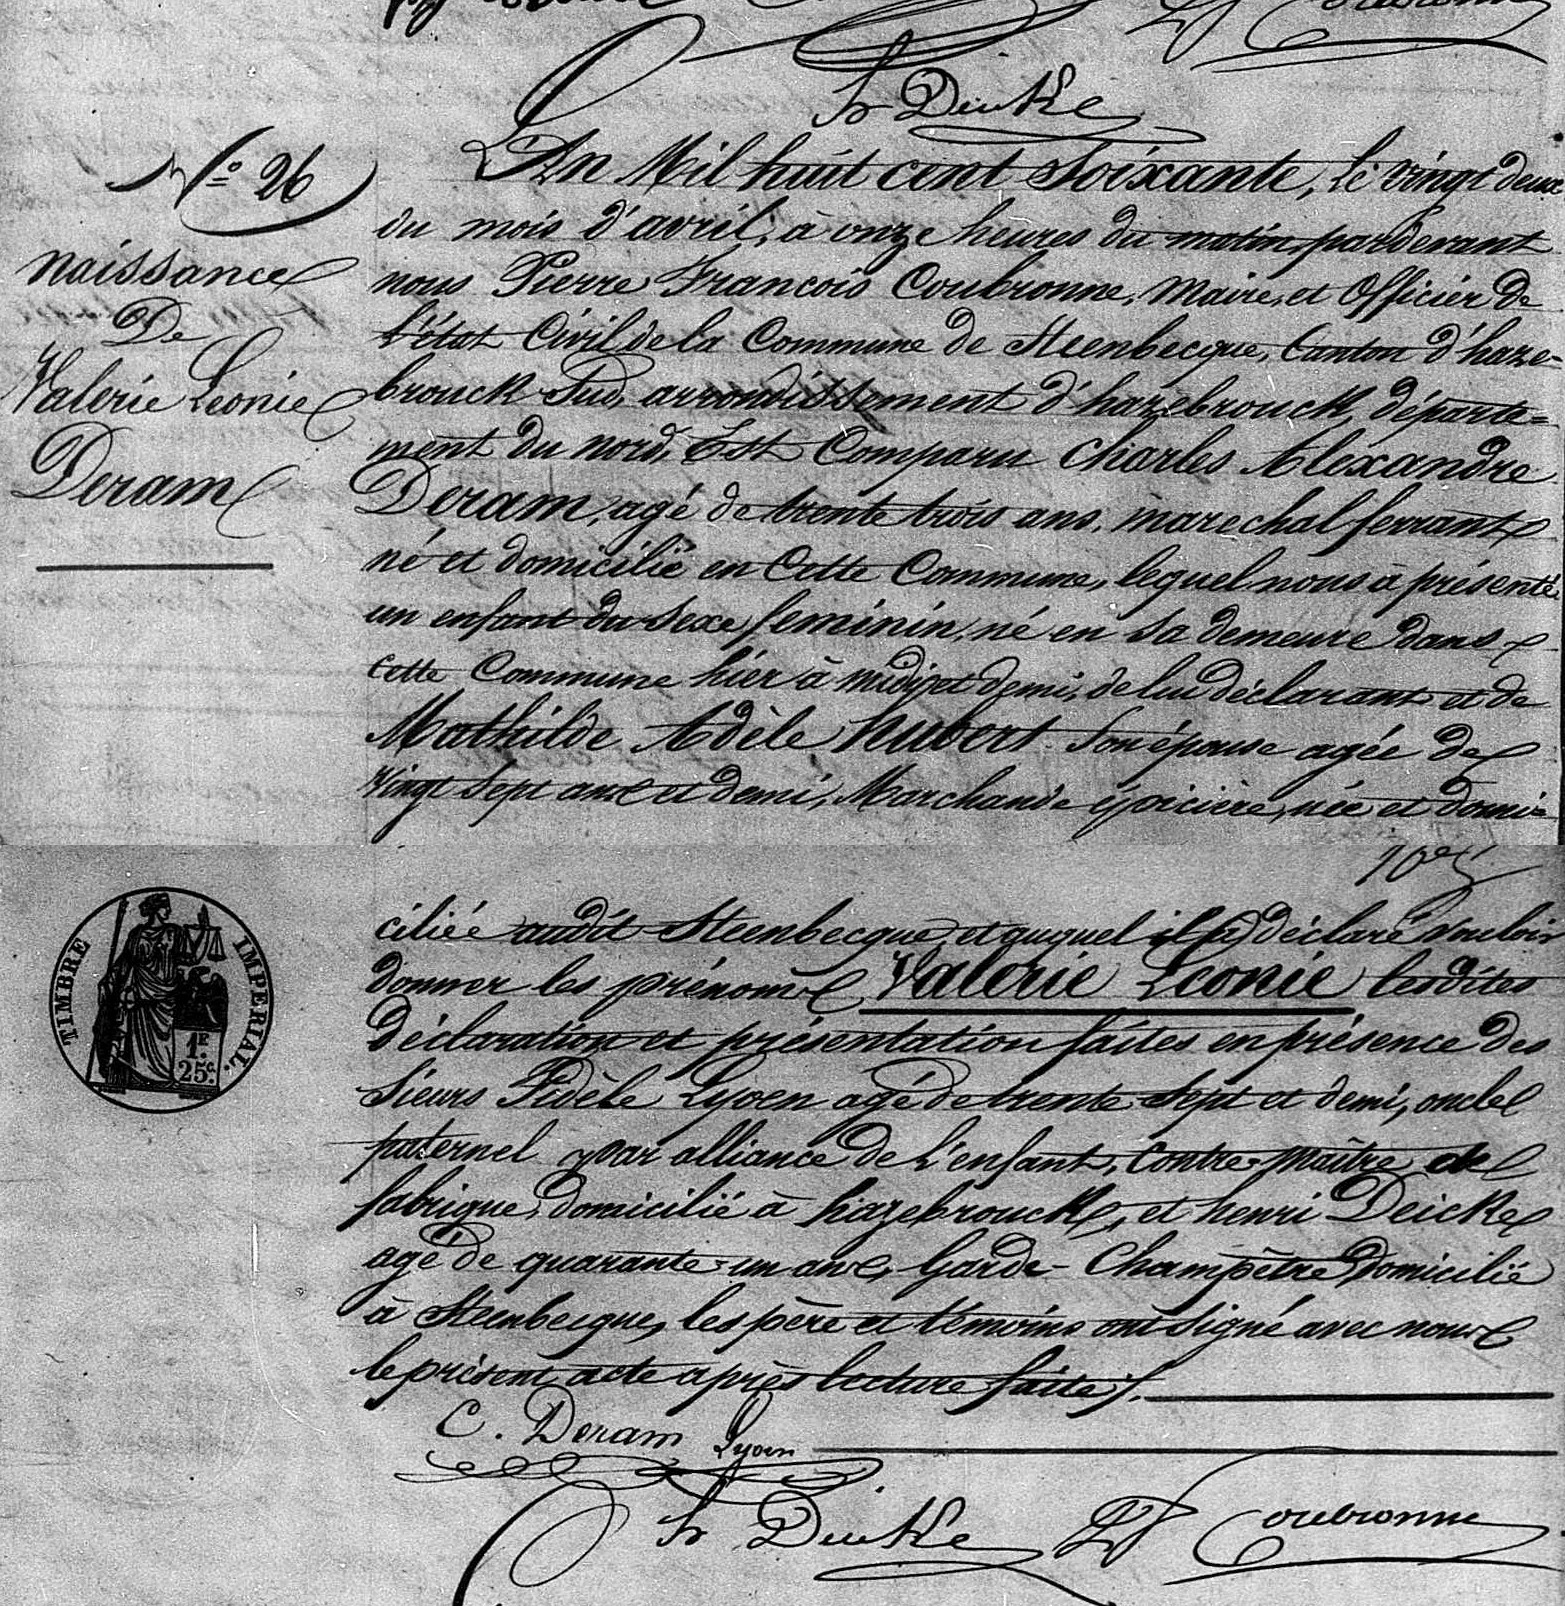 h Deicke
N.° 26
naissance
De
Valerie Leonie
Deram
L'An Mil huit cent Soixante, le vingt deux
du mois d'avril, à onze heures du matin, pardevant
nous Pierre François Coubronne, Maire, et Officier de
l'état Civil de la Commune de Steenbecque, Canton d'haze-
brouck Sud, arrondissement d'hazebrouck, départe=
ment du nord, Est Comparu Charles Alexandre
Deram, agé de trente trois ans, marechal ferrant
né et domicilié en Cette Commune, lequel nous à présenté
un enfant du Sexe feminin, né en sa demeure dans
cette Commune hier à midi et demi, de lui déclarant et de
Mathilde Adèle hubert Son épouse agée de
vingt sept ans et demi, Marchande épicière, née et domi-
ciliée audit Steenbecque, et auquel il a déclaré vouloir
donner les prénoms Valerie Leonie lesdites
déclaration et présentation faites en présence des
Sieurs Fidèle Lyoen agé de trente Sept et demi, oncle
paternel par alliance de l'enfant, Contre-Maître de
fabrique, domicilié à hazebrouck, et henri Deicke
agé de quarante-un ans, Garde-Champêtre domicilié
à Steenbecque, les père et témoins ont Signé avec nous
le présent acte après lecture faite ./.
TIMBRE IMPERIAL.
1F.
25c.
C. Deram Lyoen
h Deicke Coubronne